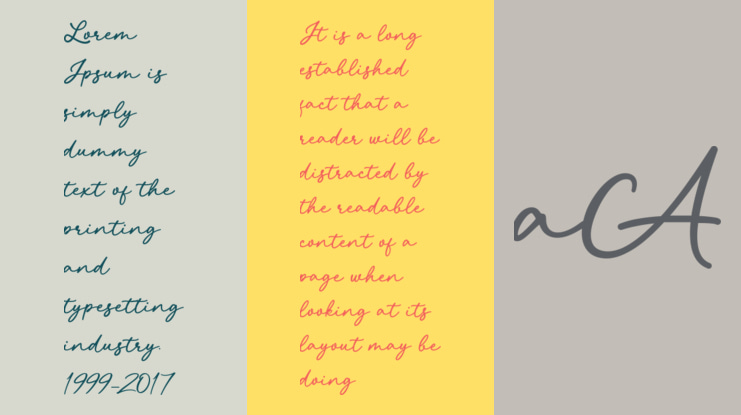 Lorem
Ipsum is
simply
dummy
text of the
printing
and
typesetting
industry.
1999-2017
It is a long
established
fact that a
reader will be
distracted by
the readable
content of a
page when
looking at its
layout may be
doing
aA